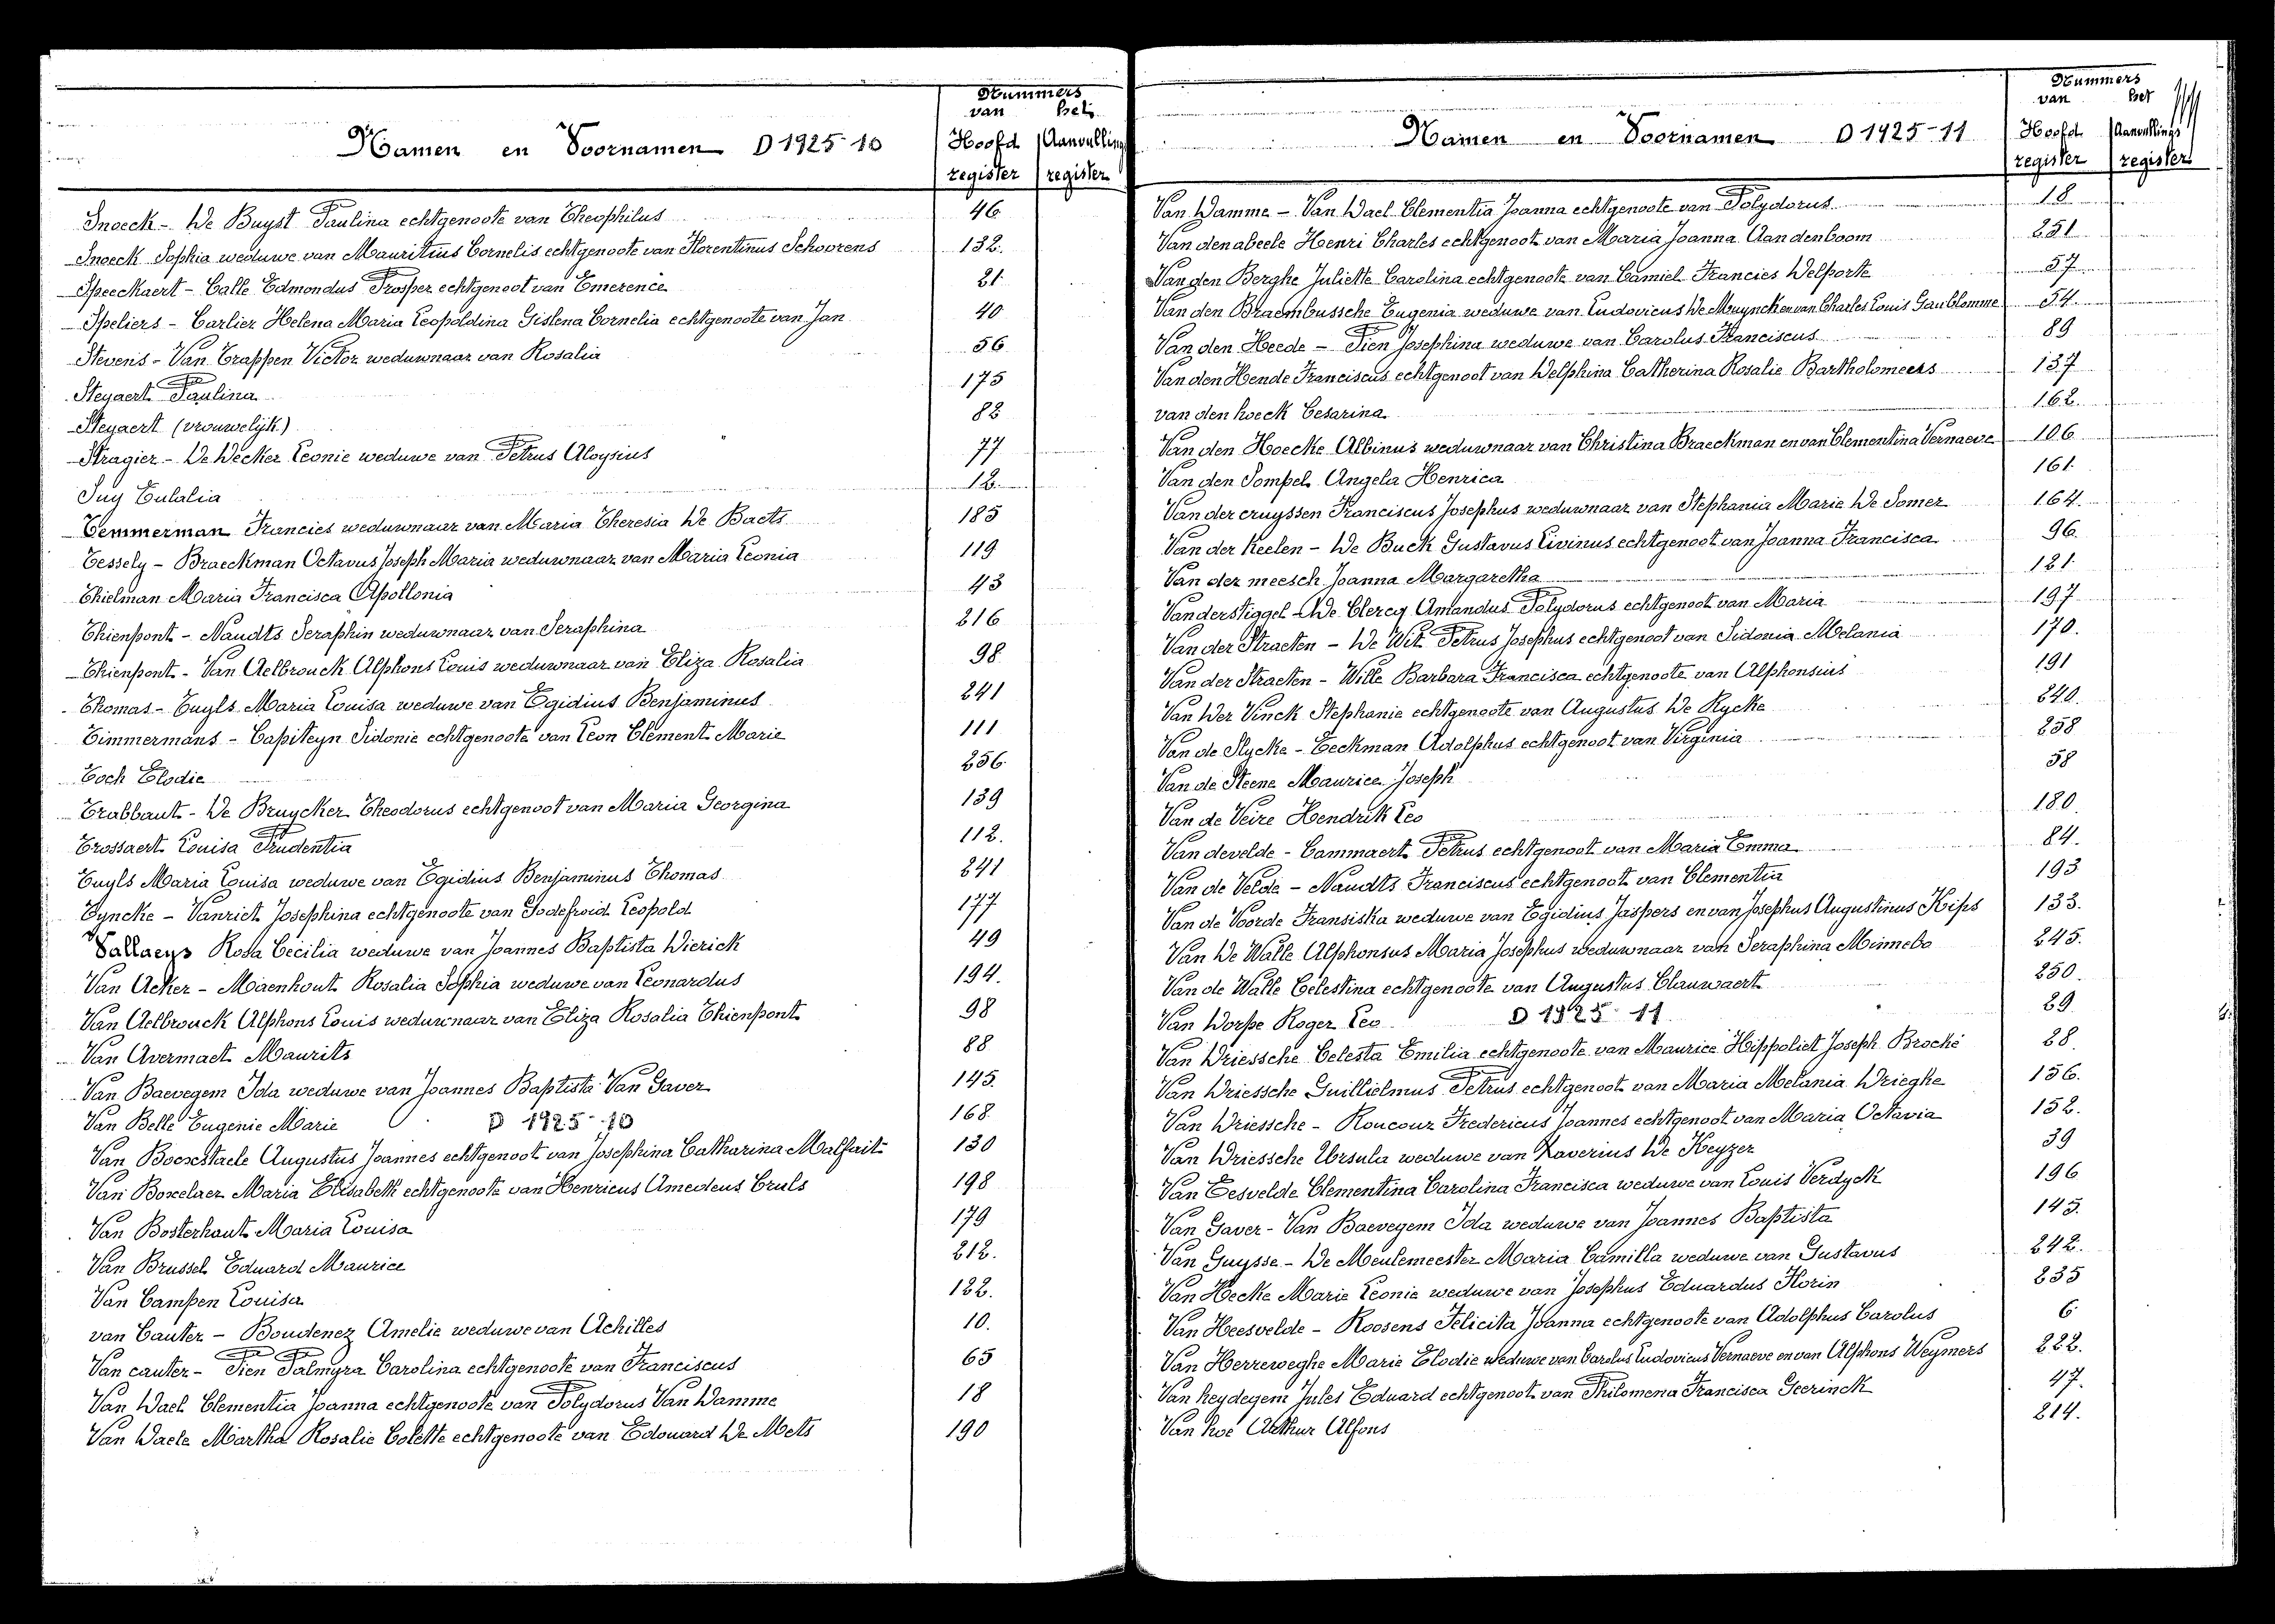 Nummers
van het
Namen en Voornamen D 1925-10 Hoofd Aanvullings
register register
Snoeck - De Buyst Paulina echtgenoote van Theophilus 46
Snoeck Sophia weduwe van Mauritius Cornelis echtgenoote van Florentinus Schoorens 132.
Speeckaert - Calle Edmondus Prosper echtgenoot van Emerence 21
Speliers - Carlier Helena Maria Leopoldina Gislena Cornelia echtgenoote van Jan 40
Stevens - Van Trappen Victor weduwnaar van Rosalia 56
Steyaert Paulina 175
Steyaert (vrouwelijk) 82
Stragier - De Decker Leonie weduwe van Petrus Aloysius 77
Suy Eulalia 12.
Temmerman Francies weduwnaar van Maria Theresia De Baets 185
Tessely - Braeckman Octavus Joseph Maria weduwnaar van Maria Leonia 119
Thielman Maria Francisca Apollonia 43
Thienpont - Naudts Seraphin weduwnaar van Seraphina 216
Thienpont - Van Aelbrouck Alphons Louis weduwnaar van Eliza Rosalia 98
Thomas - Tuyls Maria Louisa weduwe van Egidius Benjaminus 241
Timmermans - Capiteyn Sidonie echtgenoote van Leon Clement Marie 111
Toch Elodie 256
Trabbaut - De Bruycker Theodorus echtgenoot van Maria Georgina 139
Trossaert Louisa Prudentia 112.
Tuyls Maria Louisa weduwe van Egidius Benjaminus Thomas 241
Tyncke - Vanriet Josephina echtgenoote van Godefroid Leopold 177
Vallaeys Rosa Cecilia weduwe van Joannes Baptista Dierick 49
Van Acker - Maenhout Rosalia Sophia weduwe van Leonardus 194.
Van Aelbrouck Alphons Louis weduwnaar van Eliza Rosalia Thienpont 98
Van Avermaet Maurits 88
Van Baevegem Ida weduwe van Joannes Baptista Van Gaver 145.
Van Belle Eugenie Marie D 1925-10 168
Van Bocxstaele Augustus Joannes echtgenoot van Josephina Catharina Malfait 130
Van Boxelaer Maria Elisabeth echtgenoote van Henricus Amedeus Cruls 198
Van Bosterhaut Maria Louisa 179
Van Brussel Eduard Maurice 212.
Van Campen Louisa 122.
van Cauter - Boudenez Amelie weduwe van Achilles 10.
Van cauter - Pien Palmyra Carolina echtgenoote van Franciscus 65
Van Dael Clementia Joanna echtgenoote van Polydorus Van Damme 18
Van Daele Martha Rosalie Colette echtgenoote van Edouard De Mets 190
Nummers
van het
Namen en Voornamen D 1925-11 Hoofd Aanvullings
register register
Van Damme - Van Dael Clementia Joanna echtgenoote van Polydorus 18
Van den abeele Henri Charles echtgenoot van Maria Joanna Aan den boom 251
Van den Berghe Juliette Carolina echtgenoote van Camiel Francies Delporte 57
Van den Braembussche Eugenia weduwe van Ludovicus De Muynck en van Charles Louis Gaublomme 54.
Van den Heede - Pien Josephina weduwe van Carolus Franciscus 89
Van den Hende Franciscus echtgenoot van Delphina Catherina Rosalie Bartholomeeus 137
van den hoeck Cesarina 162.
Van den Hoecke Albinus weduwnaar van Christina Braeckman en van Clementina Vernaeve 106
Van den Sompel Angela Henrica 161.
Van der cruyssen Franciscus Josephus weduwnaar van Stephania Marie De Somer 164.
Van der Keelen - De Buck Gustavus Livinus echtgenoot van Joanna Francisca 96
Van der meesch Joanna Margaretha 121.
Vanderstiggel - De Clercq Amandus Polydorus echtgenoot van Maria 197
Van der Straeten - De Wit Petrus Josephus echtgenoot van Sidonia Melania 170.
Van der Straeten - Wille Barbara Francisca echtgenoote van Alphonsius 191
Van Der Vinck Stephanie echtgenoote van Augustus De Rycke 240.
Van de Slycke - Eeckman Adolphus echtgenoot van Virginia 258
Van de Steene Maurice Joseph 58
Van de Veire Hendrik Leo 180.
Van develde - Cammaert Petrus echtgenoot van Maria Emma 84.
Van de Velde - Naudts Franciscus echtgenoot van Clementia 193
Van de Voorde Fransiska weduwe van Egidius Jaspers en van Josephus Augustinus Kips 133.
Van De Walle Alphonsus Maria Josephus weduwnaar van Seraphina Minnebo 245.
Van de Walle Celestina echtgenoote van Augustus Clauwaert 250.
Van Dorpe Roger Leo D 1925-11 29
Van Driessche Celesta Emilia echtgenoote van Maurice Hippoliet Joseph Broché 28.
Van Driessche Guillielmus Petrus echtgenoot van Maria Melania Drieghe 156.
Van Driessche - Roncour Fredericus Joannes echtgenoot van Maria Octavia 152.
Van Driessche Ursula weduwe van Xaverius De Keyzer 39
Van Eesvelde Clementina Carolina Francisca weduwe van Louis Verdyck 196
Van Gaver - Van Baevegem Ida weduwe van Joannes Baptista 145.
Van Guysse - De Meulemeester Maria Camilla weduwe van Gustavus 242.
Van Hecke Marie Leonie weduwe van Josephus Eduardus Florin 235
Van Heesvelde - Roosens Felicita Joanna echtgenoote van Adolphus Carolus 6
Van Herreweghe Marie Elodie weduwe van Carolus Ludovicus Vernaeve en van Alphons Weymers 222.
Van heydegem Jules Eduard echtgenoot van Philomena Francisca Geerinck 47.
Van hoe Arthur Alfons 214.